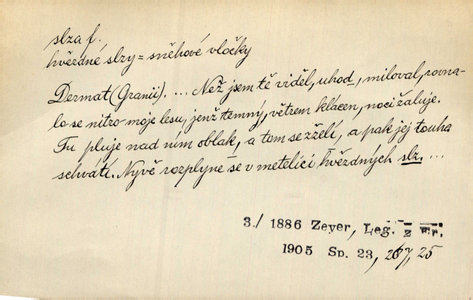 slza f.
hvězdné slzy = sněhové vločky
Dermat (Granii). ... Než jsem tě viděl, uhod, miloval, rovna-
lo se nitro moje lesu, jenž temný, větrem klácen, noci žaluje.
Tu pluje nad ním oblak, a tom se zželí, a pak jej touha
schvátí. Nyvě rozplyne se v metelici hvězdných slz. ...
3./ 1886 Zeyer, Leg. z er.
1905 Sp. 23, 267, 25